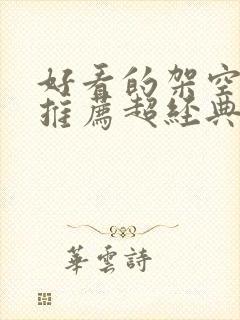 好看的架空
推薦超經典
華雲詩